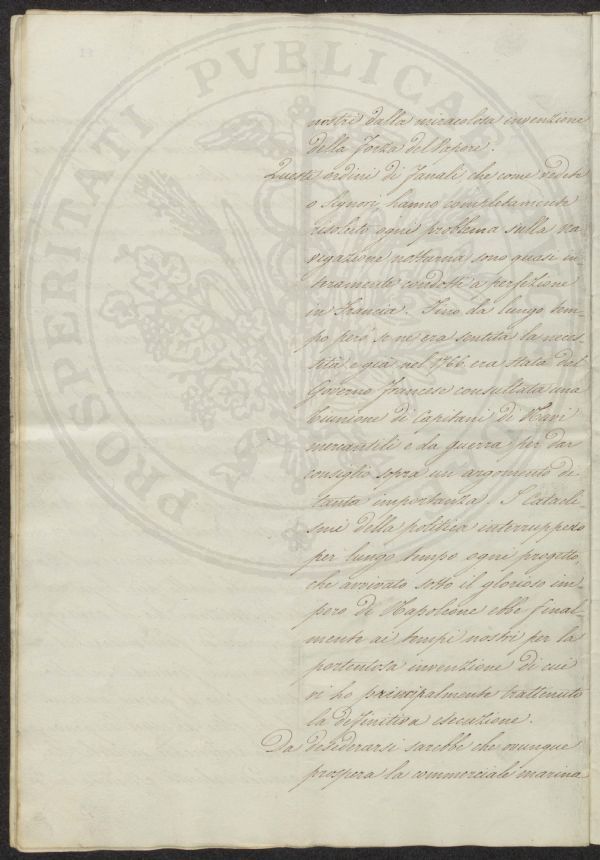 PROSPERITATI PVBLICAE
nostri dalla miracolosa invenzione
della Forza del Vapore.
Questi ordini di Fanali che come vedete
o Signori, hanno completamente
risoluto ogni problema sulla na-
vigazione notturna sono quasi in-
teramente condotti a perfezione
in Francia. Fino da lungo tem-
po però se ne era sentita la neces-
sità e già nel 1766 era stata dal
Governo Francese consultata una
Riunione di Capitani di Navi
mercantili e da guerra per dar
consiglio sopra un argomento di
tanta importanza. I Catacli-
smi della politica interruppero
per lungo tempo ogni progetto,
che avvivato sotto il glorioso im-
pero di Napoleone ebbe final-
mente ai tempi nostri per la
portentosa invenzione di cui
vi ho principalmente trattenuto
la definitiva esecuzione.
Da desiderarsi sarebbe che ovunque
prospera la commerciale marina